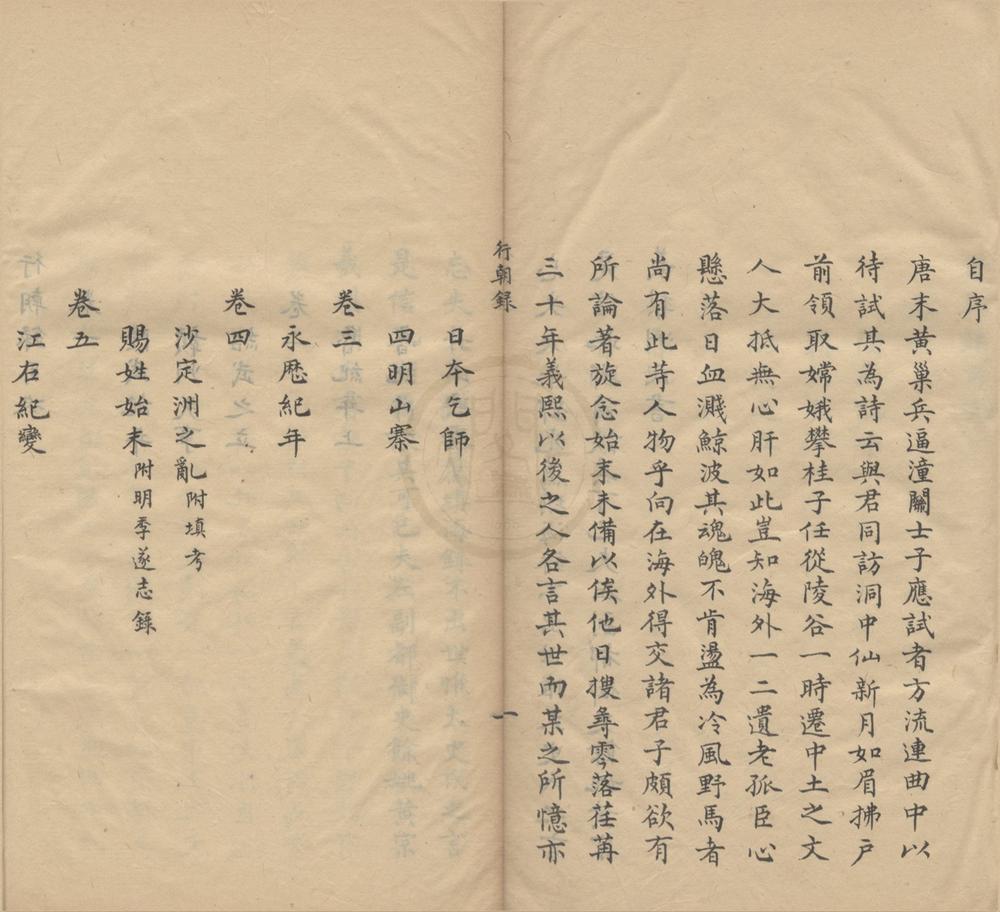 自序
唐末黃巢兵逼潼關士子應試者方流連曲中以
待試其為詩云與君同訪洞中仙新月如眉拂戶
前領取嫦娥攀桂子任從陵谷一時遷中土之文
人大抵無心肝如此豈知海外一二遺老孤臣心
懸落日血濺鯨波其魂魄不肯盪為冷風野馬者
尚有此等人物乎向在海外得交諸君子頗欲有
所論著旋念始末未備以俟他日搜尋零落荏苒
三十年義熙以後之人各言其世而某之所憶亦
行朝錄
一
日本乞師
四明山寨
卷三
永歷紀年
卷四
沙定洲之亂附填考
賜姓始末附明季遂志錄
卷五
江右紀變